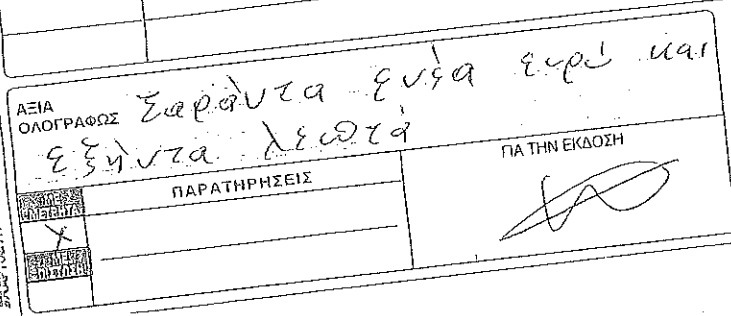 ΑΞΙΑ
ΟΛΟΓΡΑΦΩΣ Σαράντα ενέα ευρώ και
εξήντα λεπτά
ΠΑΡΑΤΗΡΗΣΕΙΣ
ΓΙΑ ΤΗΝ ΕΚΔΟΣΗ
ΜΕΤΡΗΤΑ
X